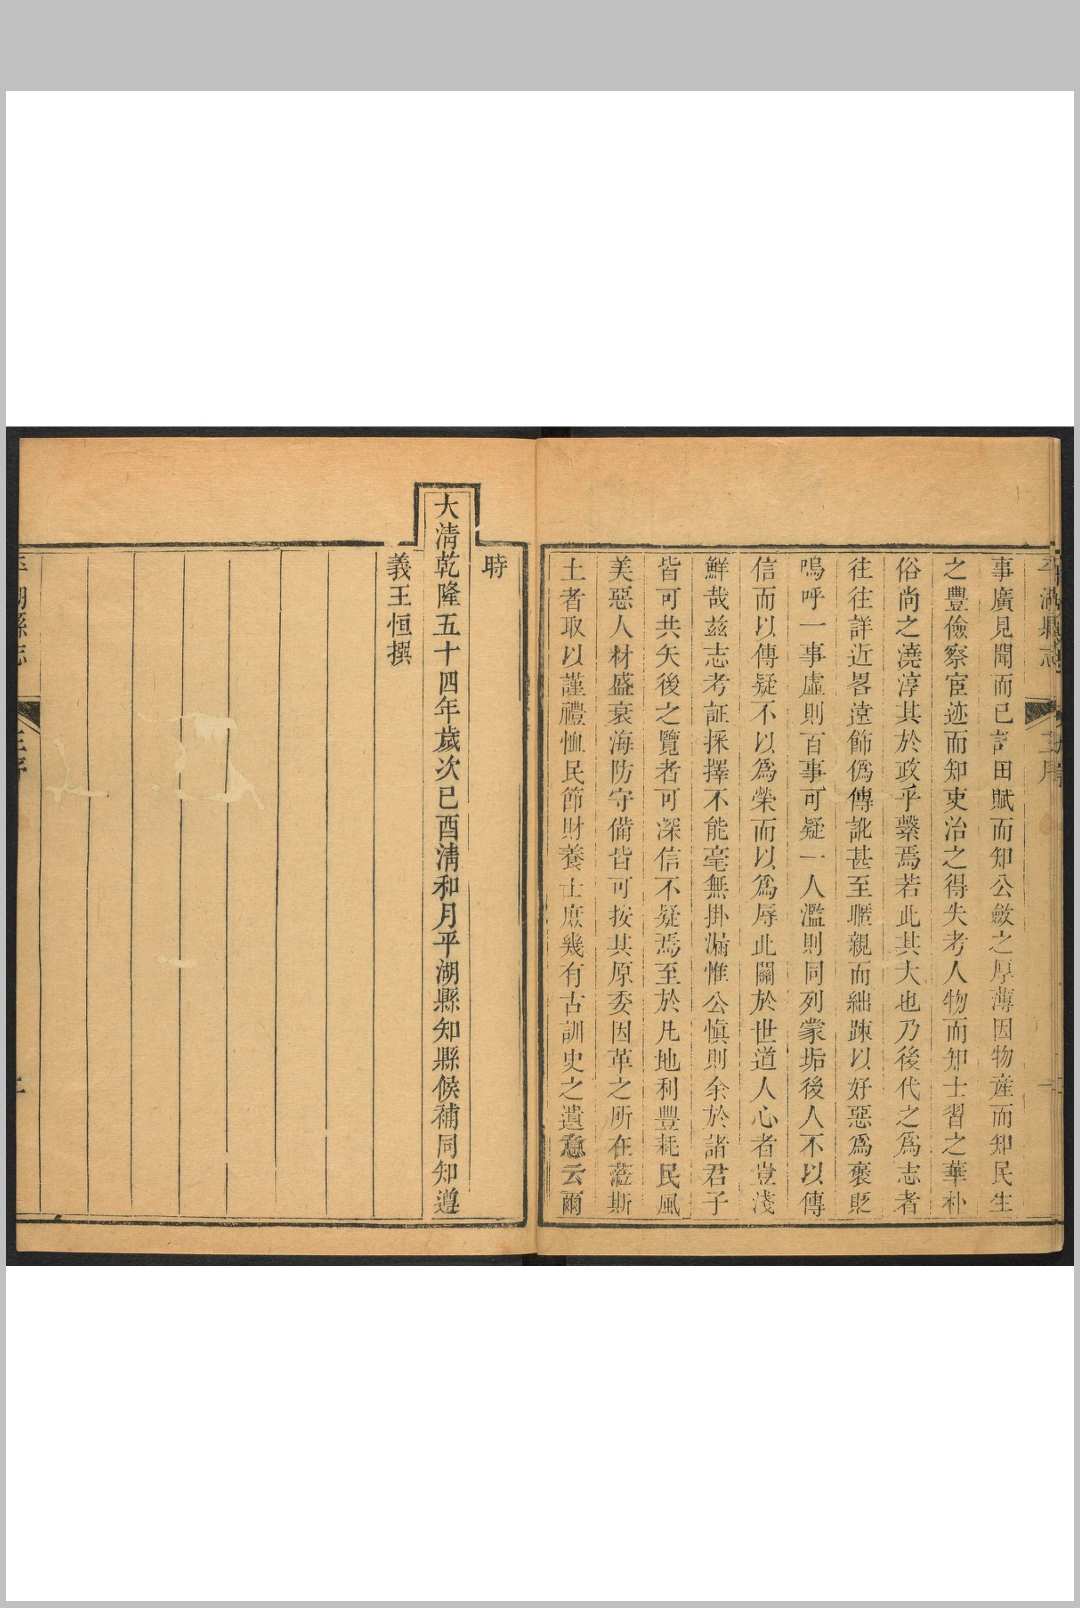 平湖縣志
王序
事廣見聞而已記田賦而知公斂之厚薄因物産而知民生
之豐儉察宦迹而知吏治之得失考人物而知士習之華朴
俗尚之澆淳其於政乎繫焉若此其大也乃後代之爲志者
往往詳近畧遠飾僞傳訛甚至暱親而絀踈以好惡爲褒貶
嗚呼一事虛則百事可疑一人濫則同列蒙垢後人不以傳
信而以傳疑不以爲榮而以爲辱此關於世道人心者豈淺
鮮哉兹志考証採擇不能毫無掛漏惟公愼則余於諸君子
皆可共矢後之覽者可深信不疑焉至於凡地利豐耗民風
美惡人材盛衰海防守備皆可按其原委因革之所在蒞斯
土者取以謹禮恤民節財養士庶幾有古訓史之遺意云爾
時
大淸乾隆五十四年歲次己酉淸和月平湖縣知縣候補同知遵
義王恒撰
平湖縣志
王序